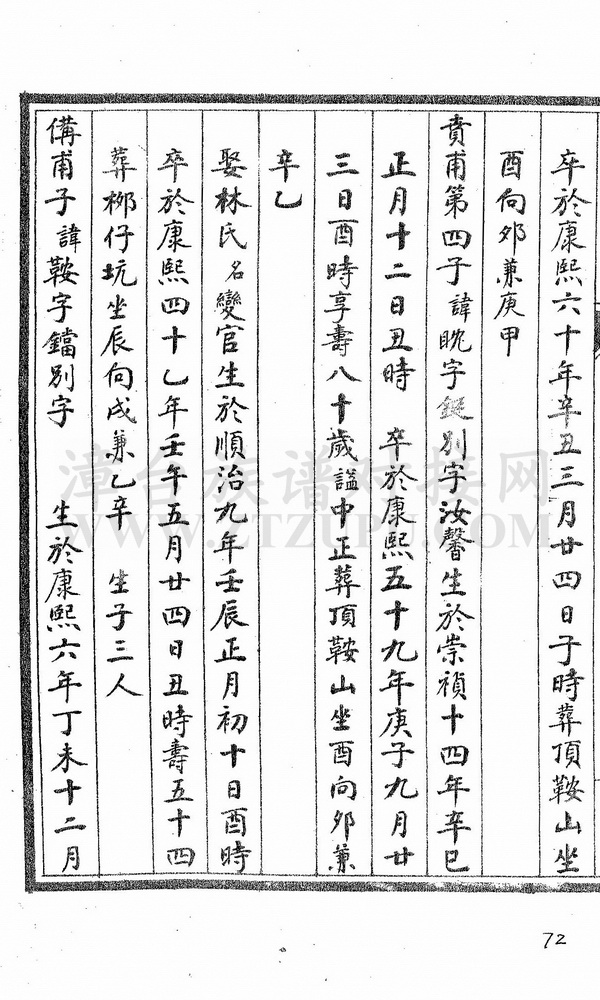 卒於康熙六十年辛丑三月廿四日子時葬頂鞍山坐
酉向夘兼庚甲
賁甫第四子諱眈字鋌別字汝馨生於崇禎十四年辛巳
正月十二日丑時 卒於康熙五十九年庚子九月廿
三日酉時享壽八十歲謚中正葬頂鞍山坐酉向夘兼
辛乙
娶林氏名變官生於順治九年壬辰正月初十日酉時
卒於康熙四十乙年壬午五月廿四日丑時壽五十四
葬梛仔坑坐辰向戍兼乙辛 生子三人
備甫子諱鞍字鐺別字 生於康熙六年丁未十二月
漳台族谱对接网
WWW.ZTZUPU.COM
72